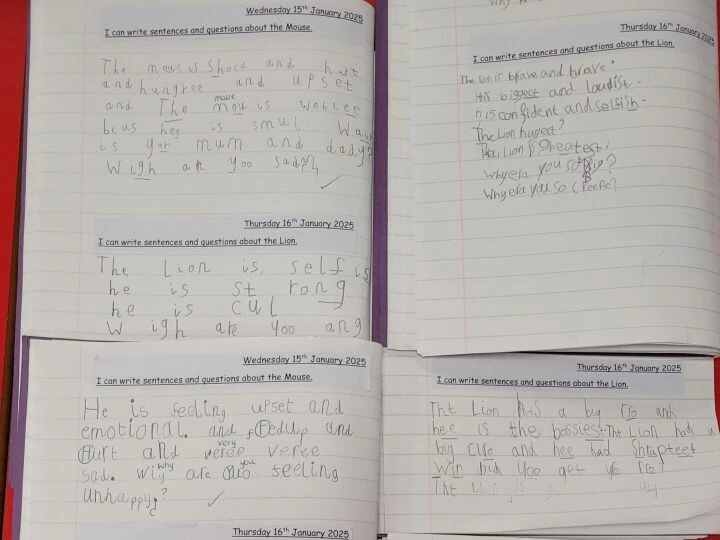 Wednesday 15th January 2025
I can write sentences and questions about the Mouse.
The mous is Shacd and hurt
and hungree and upset
mouse
and The mou is woblee
bcus hee is smul. Was
is yor mum and dady?
Wigh are yoo sad
Thursday 16th January 2025
I can write sentences and questions about the Lion.
The Lion is self is
he is st rong
he is cul
W igh are yoo ang
Why
Thursday 16th January 2025
I can write sentences and questions about the Lion.
The brave and brave.
His biggest and loudist.
His confident and selfish.
The Lion hugest?
Lion is gheatest.
Why era you so Big?
B
Why era you so Creepe?
Wednesday 15th January 2025
I can write sentences and questions about the Mouse.
He is feeling upset and
emotional. and fedup and
very
Hurt and veree veree
why you
sad. Wiy are quo seeling
unhappy?
Thursday 16th January 2025
Thursday 16th January 2025
I can write sentences and questions about the Lion.
Tht Lion has a big and
hee is the bossiest Tht Lion had a
big and hee had Shrapteet
Win did yoo get
Tht